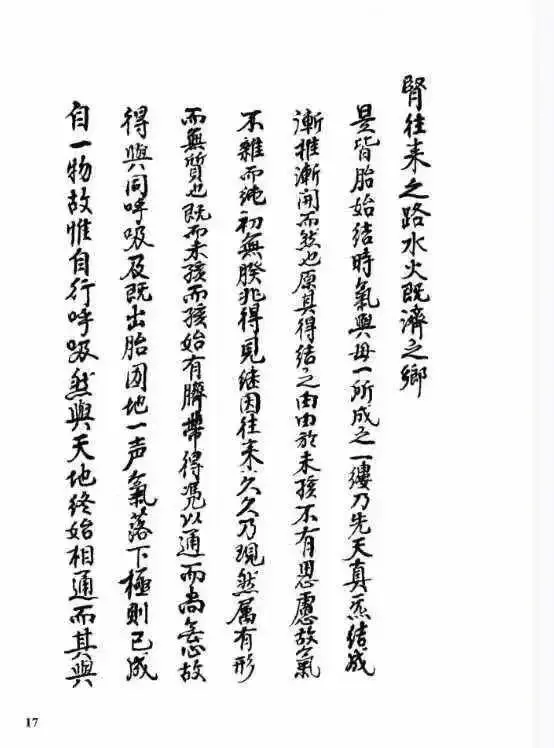 腎往来之路水火既濟之鄉
是皆胎始結時氣與母一所成之一縷乃先天真炁結成
漸推漸開而然也原其得結之由由於未孩不有思慮故氣
不雜而純初無朕兆得見继因往来久久乃現然属有形
而無質也既而未孩而孩始有臍帶得凴以通而尚無心故
得與同呼吸及既出胎囡地一声氣落下極則已成
自一物故惟自行呼吸然與天地终始相通而其與
17